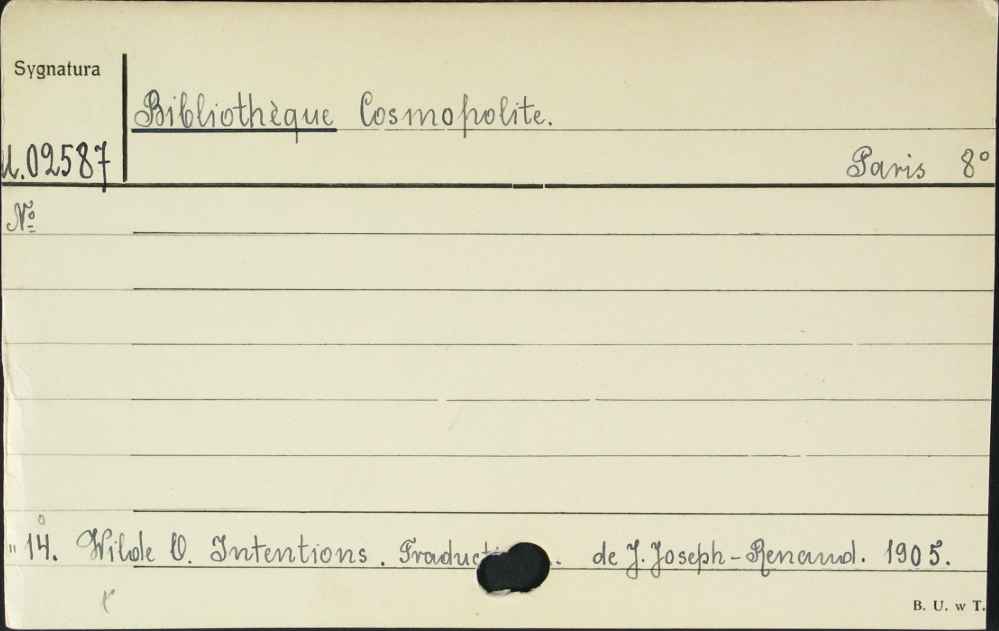 Sygnatura
Bibliothèque Cosmopolite.
U.02587
Paris 8°
№
" 14. Wilde O. Intentions. Traduction. de J. Joseph-Renaud. 1905.
B. U. w T.